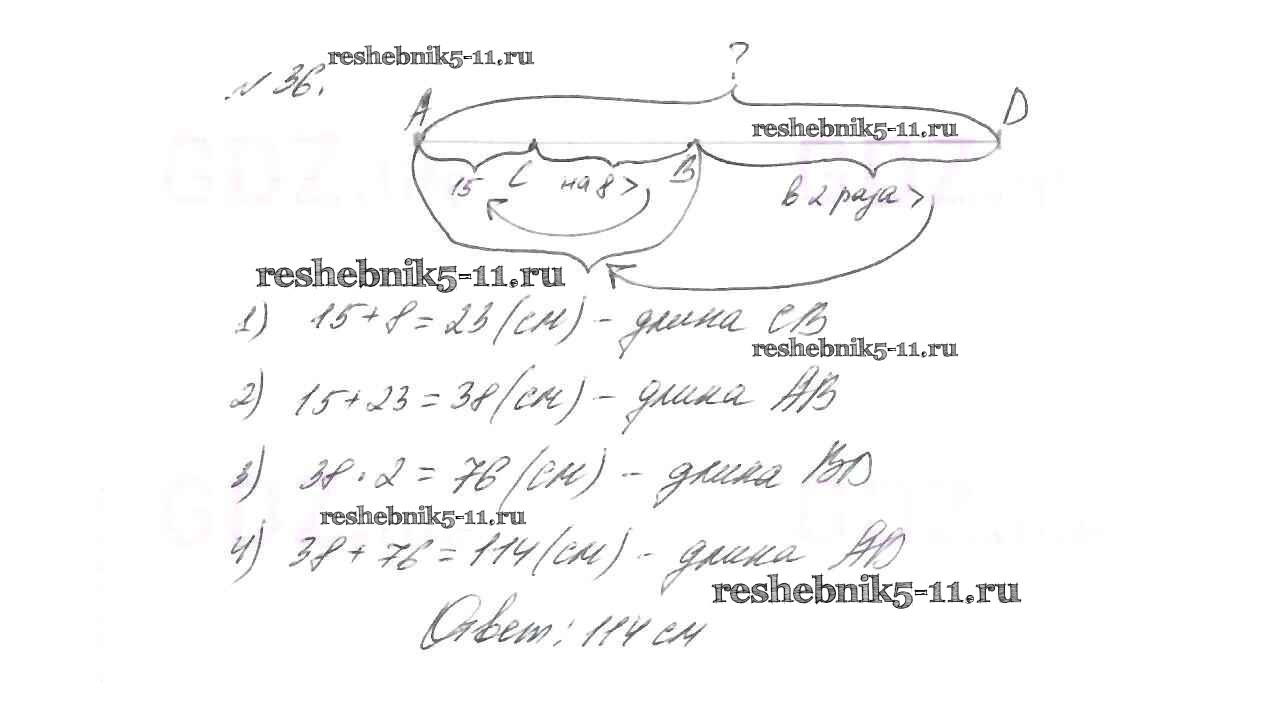 № 36.
reshebnik5-11.ru
?
A
D
reshebnik5-11.ru
15 C на 8 > B в 2 раза >
reshebnik5-11.ru
1) 15 + 8 = 23 (см) - длина CB
reshebnik5-11.ru
2) 15 + 23 = 38 (см) - длина AB
3) 38 · 2 = 76 (см) - длина BD
reshebnik5-11.ru
4) 38 + 76 = 114 (см) - длина AD
reshebnik5-11.ru
Ответ: 114 см